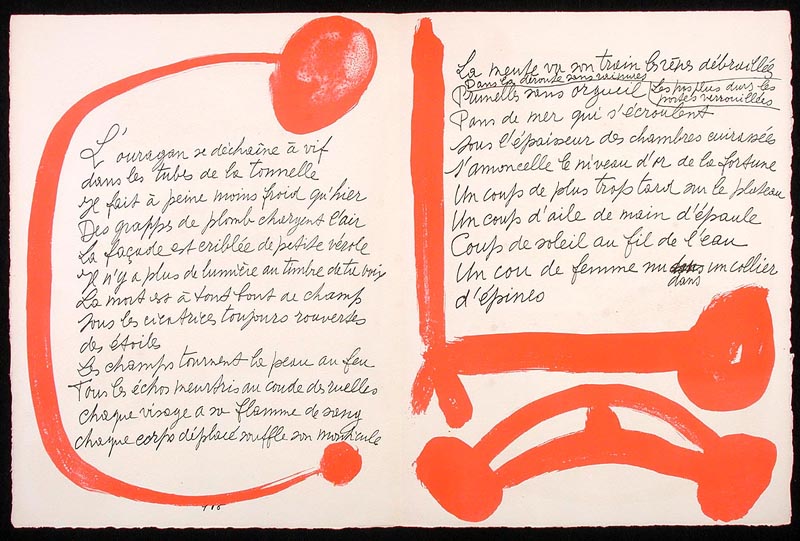 L'ouragan se déchaîne à vif
dans les tubes de la tonnelle
Il fait à peine moins froid qu'hier
Des grappes de plomb chargent l'air
La façade est criblée de petite vérole
Il n'y a plus de lumière au timbre de ta voix
La mort est à tout bout de champ
sous les cicatrices toujours rouvertes
des étoiles
Les champs tournent la peau au feu
Tous les échos meurtris au coude des ruelles
chaque visage a sa flamme de sang
chaque corps déplacé souffle son monticule
La meute va son train les crêpes débraillés
Dans la déroute sans rainures
Prunelles sans orgueil
Les pas plus durs les
portes verrouillées
Pans de mer qui s'écroulent
sous l'épaisseur des chambres cuirassées
s'amoncelle le niveau d'or de la fortune
Un coup de plus trop tard sur le plateau
Un coup d'aile de main d'épaule
Coup de soleil au fil de l'eau
Un cou de femme nu dans un collier
d'épines